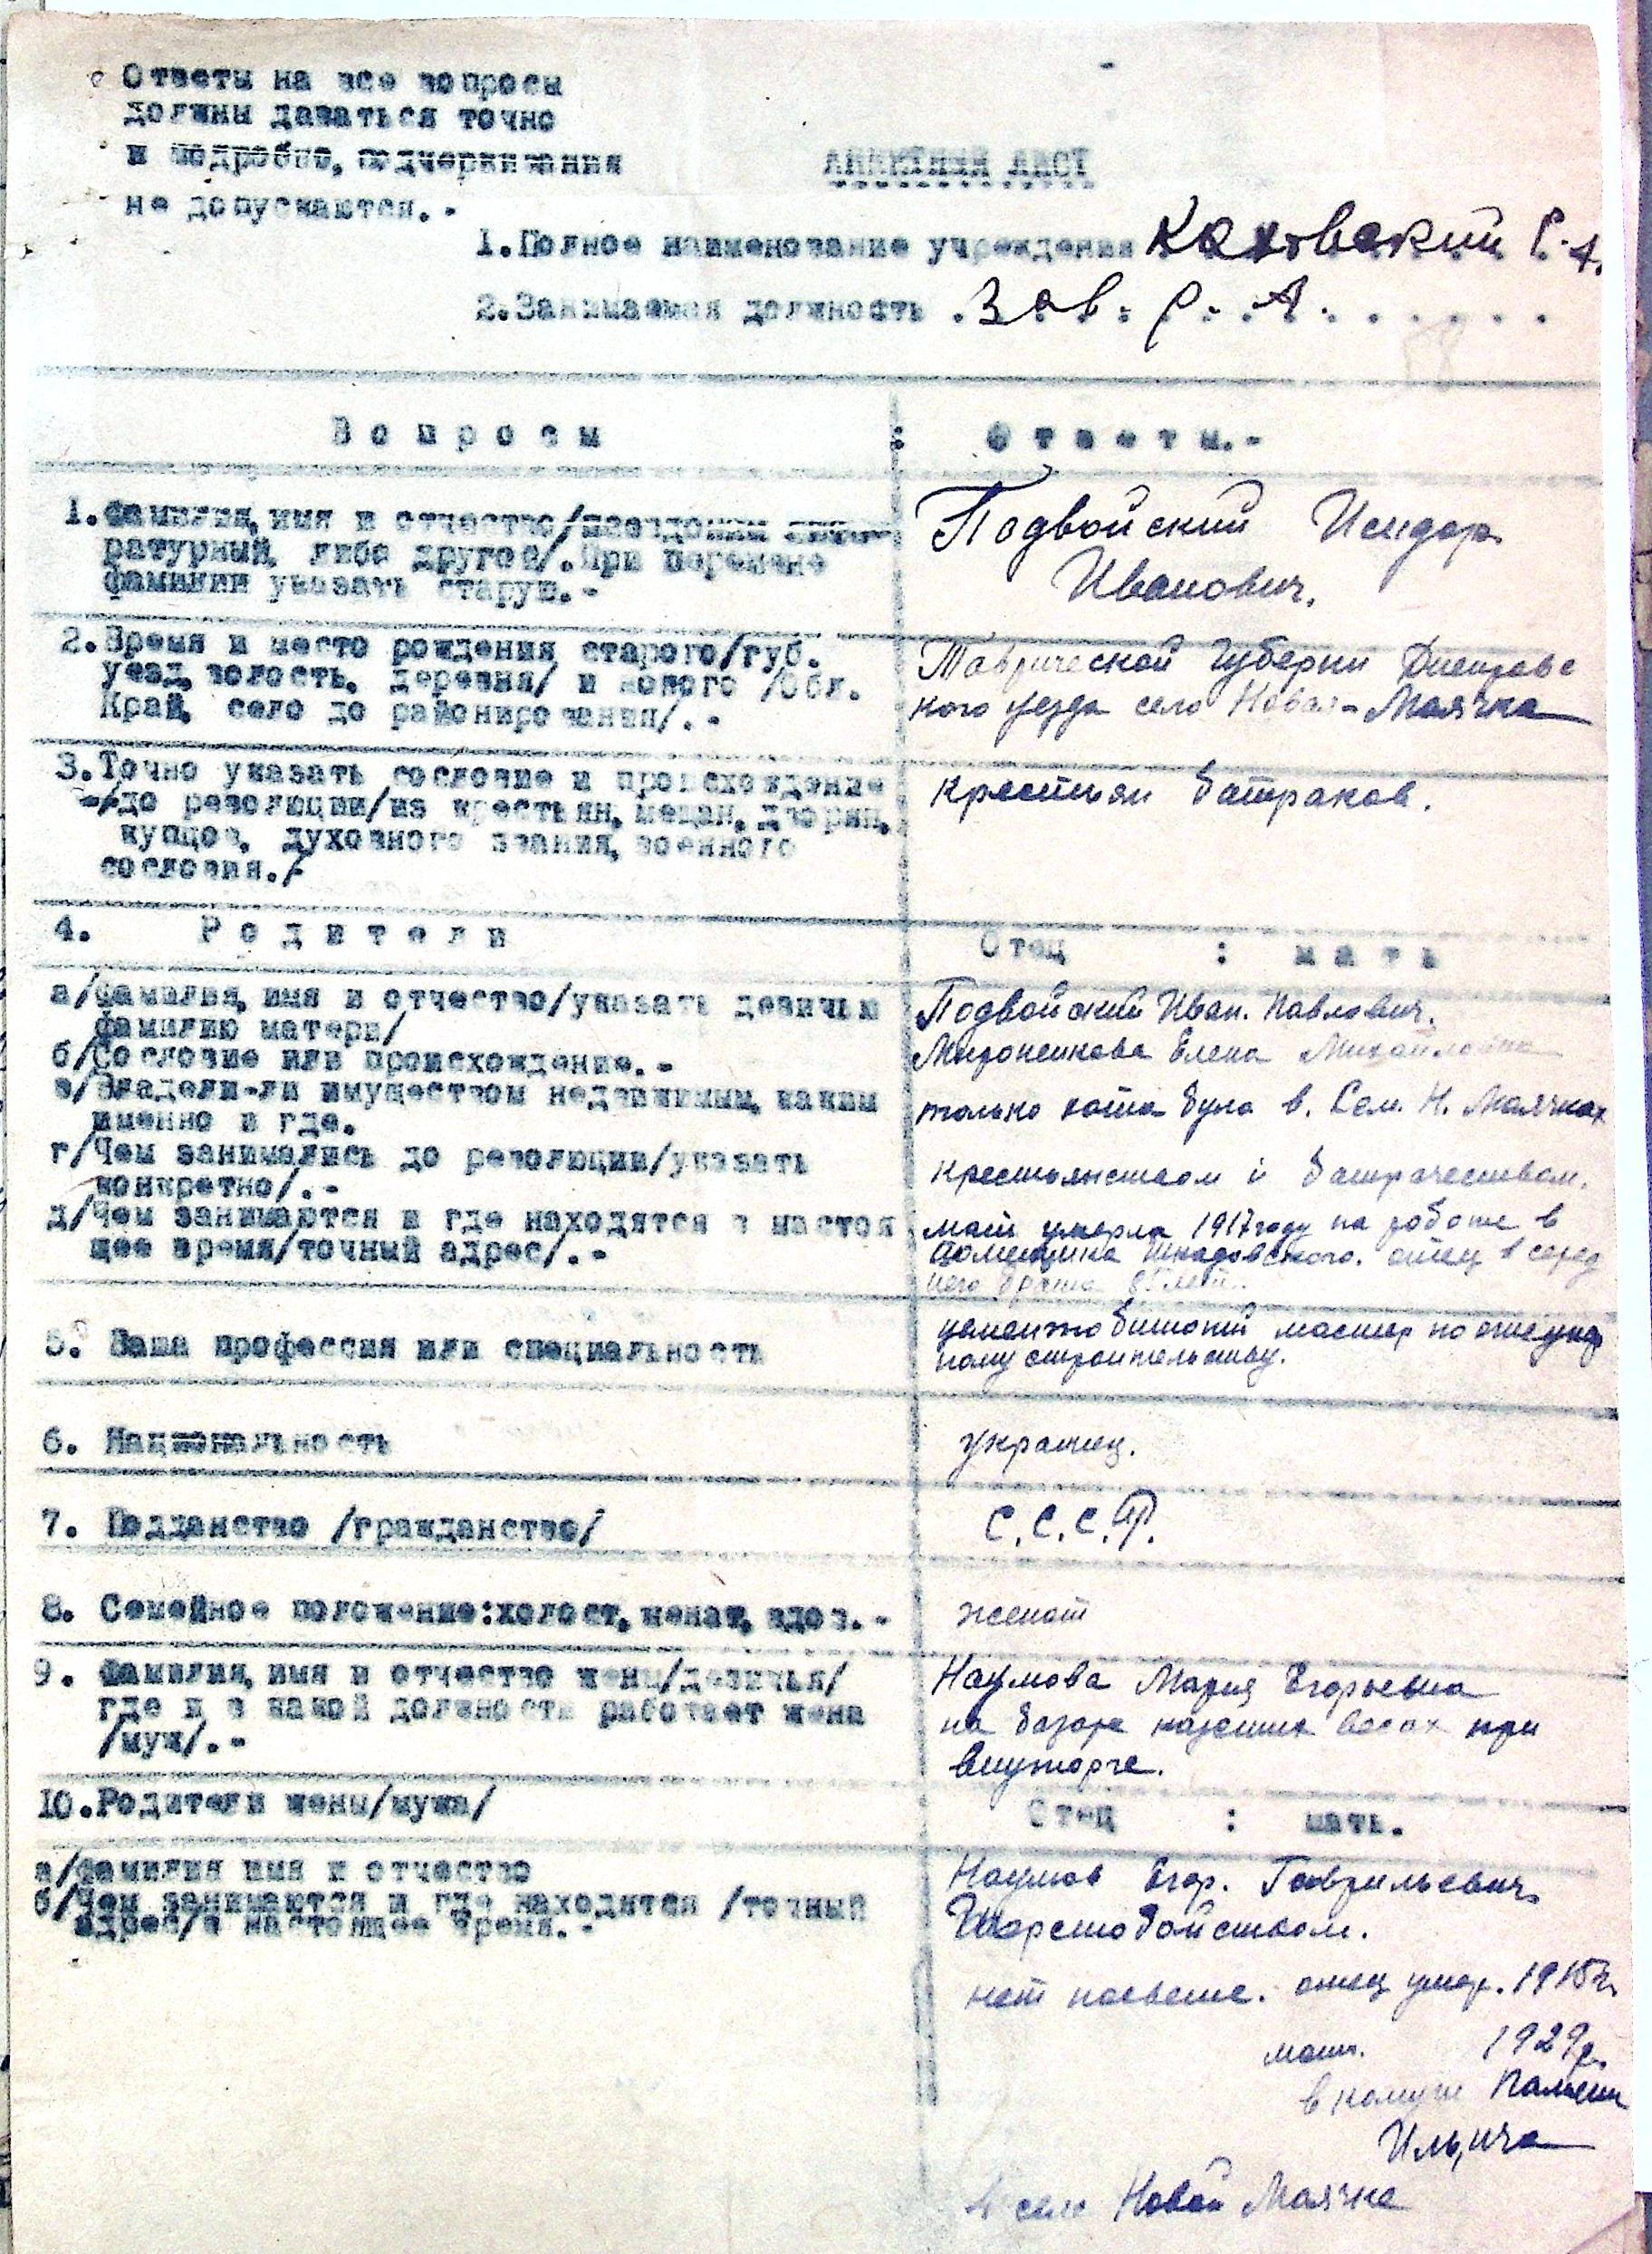 Ответы на все вопросы
должны даваться точно
и подробно, подчеркивания
не допускаются.-
АНКЕТНЫЙ ЛИСТ
1.Полное наименование учреждения Каховский Р.А.
2.Занимаемая должность . Зав. р. А. . . . . . .
Вопросы : Ответы.-
1.Фамилия, имя и отчество/псевдоним лите-
ратурный, либо другой/.При перемене
фамилии указать старую.-
Подвойский Исидор
Иванович.
2.Время и место рождения старого/губ.
уезд, волость, деревня/ и нового /Обл.
Край, село до районирования/.-
Таврической Губерни Днепровс
кого уезда село Новая-Маячка
3.Точно указать сословие и происхождение
-/до революции/из крестьян, мещан, дворян,
купцов, духовного звания, военного
сословия./-
крестьян батраков.
4. Родители
Отец : мать
а/фамилия, имя и отчество/указать девичью
фамилию матери/
б/Сословие или происхождение.-
в/Владели-ли имуществом недвижимым, каким
именно и где.
г/Чем занимались до революции/указать
конкретно/.-
д/Чем занимаются и где находятся в настоя
щее время/точный адрес/.-
Подвойский Иван. Павлович.
Мироненкова Елена Михайловна
только хата була в. Сел. Н. Маячках
крестьянством і батрачеством.
мать умерла 1917 году на роботе в
помещика Шкадовского. отец в серед
него брата
5. Ваша профессия или специальность
цементно бетоний мастер по
ному строительству.
6. Национальность
украинец.
7. Подданство /гражданство/
С.С.С.Р.
8. Семейное положение:холост, женат, вдов.-
женат
9. Фамилия, имя и отчество жены/девичья/
где и в какой должности работает жена
/муж/.-
Наумова Мария Егорьевна
на базаре весах при
внуторге.
10.Родители жены/мужа/
Отец : мать.
а/фамилия имя и отчество
б/Чем занимаются и где находятся /точный
адрес/в настоящее время.-
Наумов Егор. Гаврильевич
Шерстобойством.
нет отец умер. 1915г.
мать. 1929г.
в комуне Памяти
Ильича
в селе Новой Маячке